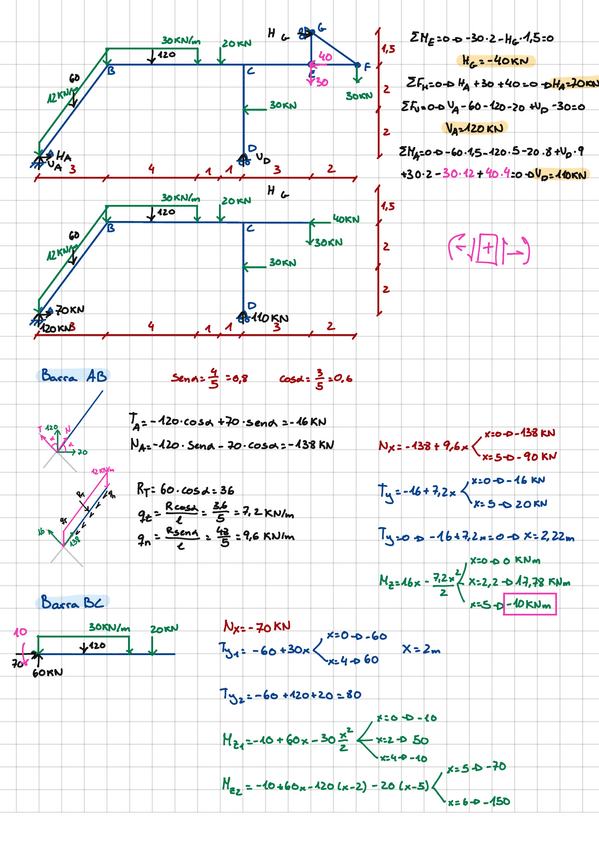 30KN/m 20KN H G G
120
60
12KN/m
B C E 40 F
30 30KN
30KN
D
HA VA VD
3 4 1 1 3 2
1,5
2
2
ΣME=0→-30·2-HG·1,5=0
HG=-40KN
ΣFH=0→HA+30+40=0→HA=70KN
ΣFV=0→VA-60-120-20+VD-30=0
VA=120KN
ΣMA=0→-60·1,5-120·5-20·8+VD·9
+30·2-30·12+40·4=0→VD=110KN
30KN/m 20KN H G
120
60
12KN/m
B C 40KN
30KN
30KN
D
70KN
120KN 110KN
3 4 1 1 3 2
1,5
2
2
(←↓|+|↑→)
Barra AB senα=4/5=0,8 cosα=3/5=0,6
T 120 N
α α
70
TA=-120·cosα+70·senα=-16KN
NA=-120·senα-70·cosα=-138KN
12KN/m
qt qn
16 138
RT=60·cosα=36
qt=Rcosα/l=36/5=7,2KN/m
qn=Rsenα/l=48/5=9,6KN/m
Nx=-138+9,6x x=0→-138KN
x=5→-90KN
Ty=-16+7,2x x=0→-16KN
x=5→20KN
Ty=0→-16+7,2x=0→x=2,22m
Mz=16x-7,2x²/2 x=0→0KNm
x=2,2→17,78KNm
x=5→-10KNm
Barra BC
10 30KN/m 20KN
120
70
60KN
Nx=-70KN
Ty1=-60+30x x=0→-60
x=4→60
x=2m
Ty2=-60+120+20=80
Mz1=-10+60x-30x²/2 x=0→-10
x=2→50
x=4→-10
Mz2=-10+60x-120(x-2)-20(x-5) x=5→-70
x=6→-150